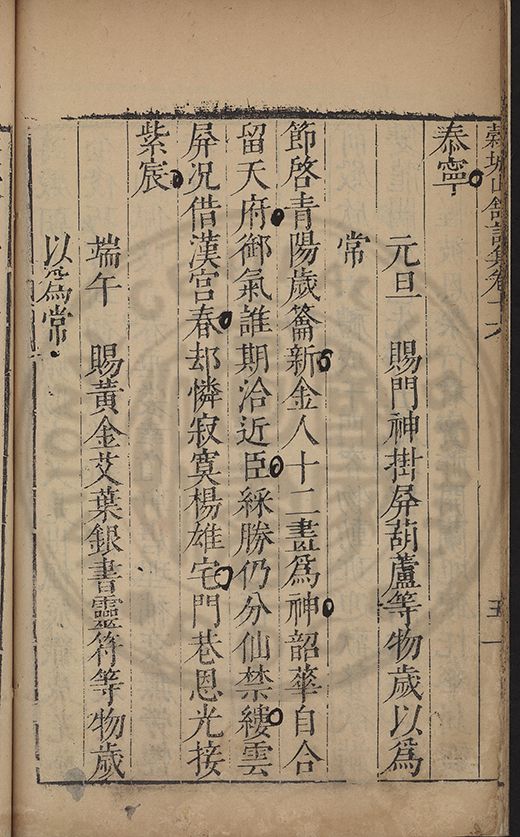 穀城山館詩集卷十六
五
泰寧
元旦　賜門神掛屏葫蘆等物歲以爲
常
節啓青陽歲籥新金人十二畫爲神韶華自合
留天府御氣誰期洽近臣綵勝仍分仙禁縷雲
屏况借漢宮春却憐寂寞楊雄宅門巷恩光接
紫宸
端午　賜黃金艾葉銀書靈符等物歲
以爲常